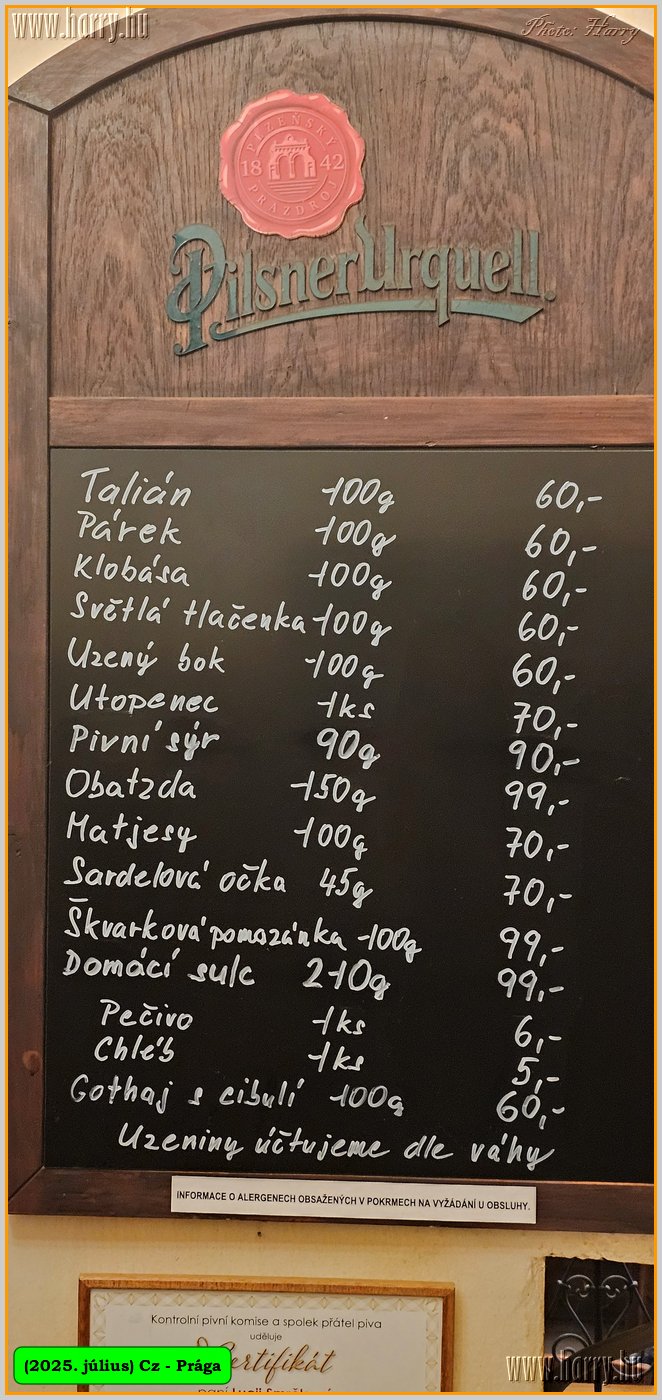 www.harry.hu
Photo: Harry
PLZEŇSKÝ
18 42
PRAZDROJ
Pilsner Urquell.
Talián 100g 60,-
Párek 100g 60,-
Klobása 100g 60,-
Světlá tlačenka 100g 60,-
Uzený bok 100g 60,-
Utopenec 1ks 70,-
Pivní sýr 90g 90,-
Obatzda 150g 99,-
Matjesy 100g 70,-
Sardelová očka 45g 70,-
Škvarková pomazánka 100g 99,-
Domácí sulc 210g 99,-
Pečivo 1ks 6,-
Chléb 1ks 5,-
Gothaj s cibulí 100g 60,-
Uzeniny účtujeme dle váhy
INFORMACE O ALERGENECH OBSAŽENÝCH V POKRMECH NA VYŽÁDÁNÍ U OBSLUHY.
Kontrolní pivní komise a spolek přátel piva
uděluje
Certifikát
paní Lucii
(2025. július) Cz - Prága
www.harry.hu